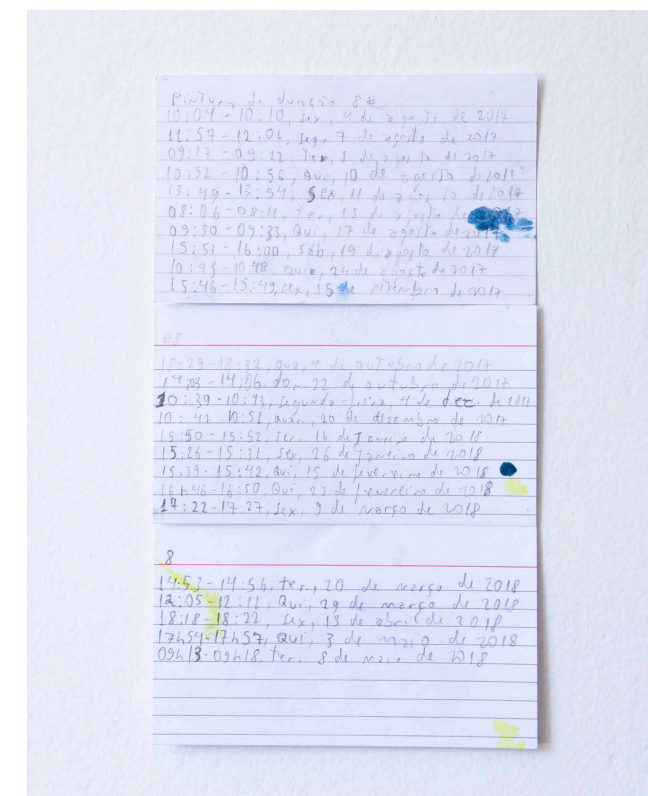 Pintura de duração 8#
10:04 - 10:10, sex, 4 de agosto de 2017
11:59 - 12:02, seg, 7 de agosto de 2017
09:17 - 09:12, Ter, 8 de agosto de 2017
10:52 - 10:56, Qui, 10 de agosto de 2017
13:49 - 13:54, Sex, 11 de agosto de 2017
08:06 - 08:11, ter, 15 de agosto de 2017
09:30 - 09:33, Qui, 17 de agosto de 2017
15:53 - 16:00, Sáb, 19 de agosto de 2017
10:43 - 10:48, quin, 24 de agosto de 2017
15:46 - 15:49, sex, 15 de setembro de 2017
#8
18:29 - 18:32, qua, 4 de outubro de 2017
14:03 - 14:06, do, 22 de outubro de 2017
10:39 - 10:43, segunda-feira, 4 de dez. de 2017
10:47 - 10:51, quar, 20 de dezembro de 2017
15:50 - 15:52, Ter, 16 de Janeiro de 2018
15:26 - 15:31, Sex, 26 de Janeiro de 2018
15:39 - 15:42, Qui, 15 de fevereiro de 2018
16h46 - 16:50, Qui, 22 de fevereiro de 2018
17:22 - 17:27, Sex, 9 de março de 2018
8
14:53 - 14:56, ter, 20 de março de 2018
12:05 - 12:11, Qui, 29 de março de 2018
18:18 - 18:22, sex, 13 de abril de 2018
17h54 - 17h57, Qui, 3 de maio de 2018
09h13 - 09h18, ter, 8 de maio de 2018